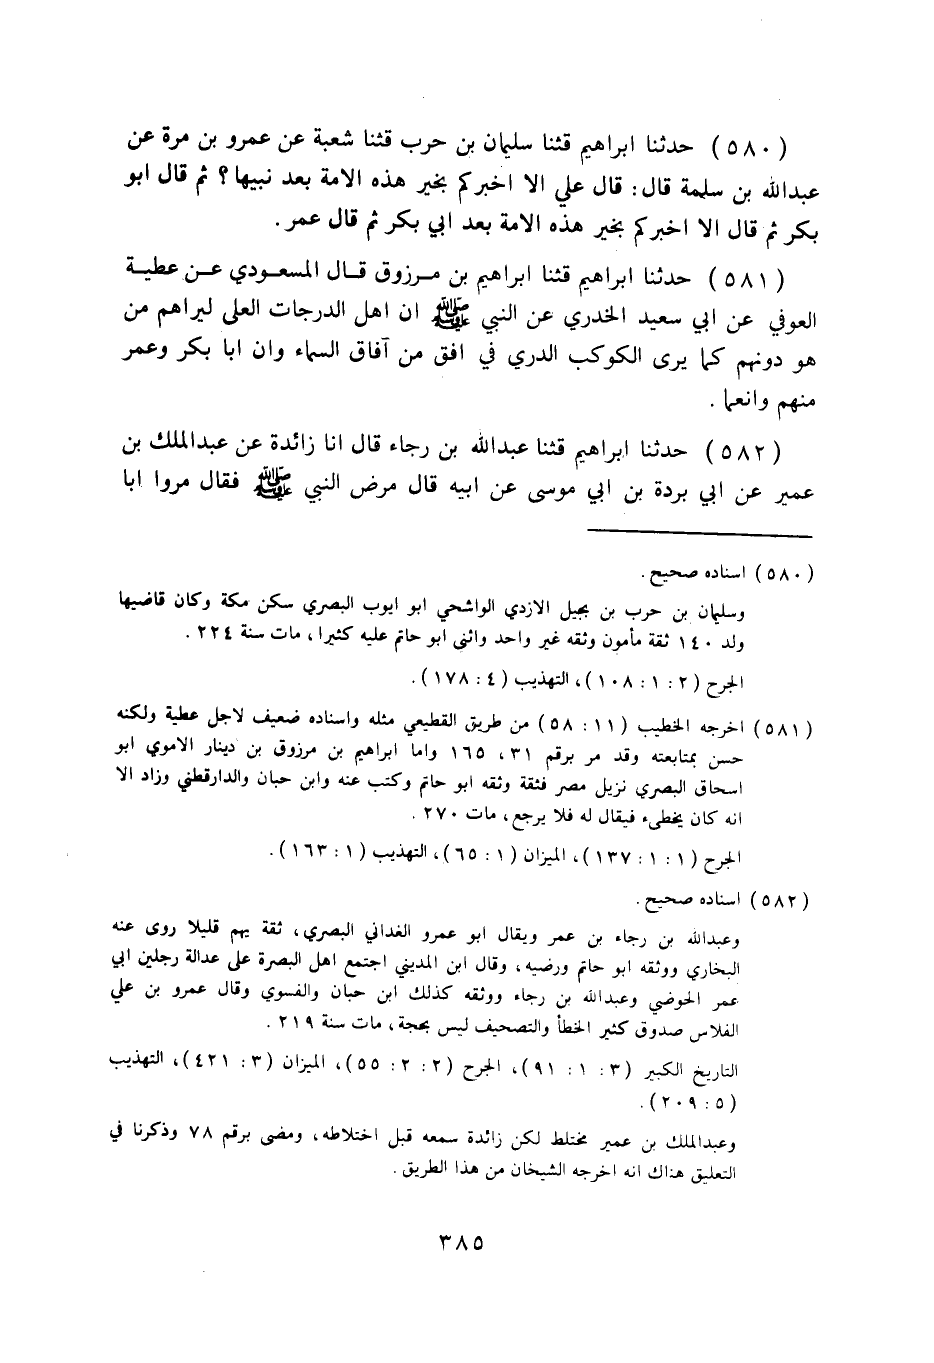 (٥٨٠) حدثنا ابراهيم قثنا سليمان بن حرب قثنا شعبة عن عمرو بن مرة عن
عبدالله بن سلمة قال: قال علي الا اخبركم بخير هذه الامة بعد نبيها؟ ثم قال ابو
بكر ثم قال الا اخبركم بخير هذه الامة بعد ابي بكر ثم قال عمر.
(٥٨١) حدثنا ابراهيم قثنا ابراهيم بن مرزوق قال المسعودي عن عطية
العوفي عن ابي سعيد الخدري عن النبي ﷺ ان اهل الدرجات العلى ليراهم من
هو دونهم كما يرى الكوكب الدري في افق من آفاق السماء وان ابا بكر وعمر
منهم وانعما.
(٥٨٢) حدثنا ابراهيم قثنا عبدالله بن رجاء قال انا زائدة عن عبدالملك بن
عمير عن ابي بردة بن ابي موسى عن ابيه قال مرض النبي ﷺ فقال مروا ابا
(٥٨٠) اسناده صحيح.
وسليمان بن حرب بن بجيل الازدي الواشحي ابو ايوب البصري سكن مكة وكان قاضيها
ولد ١٤٠ ثقة مأمون وثقه غير واحد واثنى ابو حاتم عليه كثيرا، مات سنة ٢٢٤.
الجرح (٢: ١: ١٠٨)، التهذيب (٤: ١٧٨).
(٥٨١) اخرجه الخطيب (١١: ٥٨) من طريق القطيعي مثله واسناده ضعيف لاجل عطية ولكنه
حسن بمتابعته وقد مر برقم ٣١، ١٦٥ واما ابراهيم بن مرزوق بن دينار الاموي ابو
اسحاق البصري نزيل مصر فثقة وثقه ابو حاتم وكتب عنه وابن حبان والدارقطني وزاد الا
انه كان يخطىء فيقال له فلا يرجع، مات ٢٧٠.
الجرح (١: ١: ١٣٧)، الميزان (١: ٦٥)، التهذيب (١: ١٦٣).
(٥٨٢) اسناده صحيح.
وعبدالله بن رجاء بن عمر ويقال ابو عمرو الغداني البصري، ثقة يهم قليلا روى عنه
البخاري ووثقه ابو حاتم ورضيه، وقال ابن المديني اجتمع اهل البصرة على عدالة رجلين ابي
عمر الحوضي وعبدالله بن رجاء ووثقه كذلك ابن حبان والفسوي وقال عمرو بن علي
الفلاس صدوق كثير الخطأ والتصحيف ليس بحجة، مات سنة ٢١٩.
التاريخ الكبير (٣: ١: ٩١)، الجرح (٢: ٢: ٥٥)، الميزان (٣: ٤٢١)، التهذيب
(٥: ٢٠٩).
وعبدالملك بن عمير مختلط لكن زائدة سمعه قبل اختلاطه، ومضى برقم ٧٨ وذكرنا في
التعليق هناك انه اخرجه الشيخان من هذا الطريق.
٣٨٥